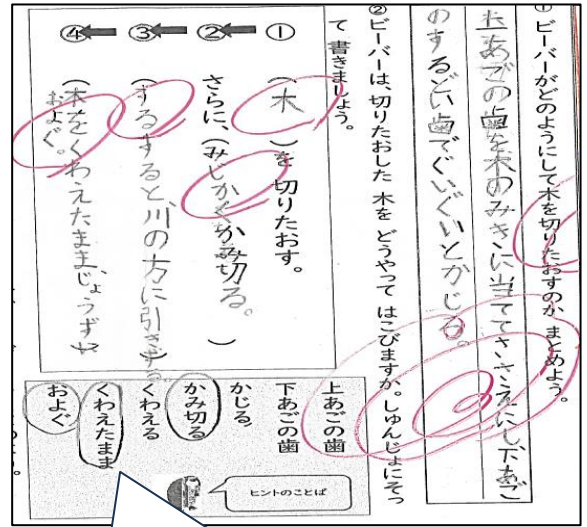 ①ビーバーがどのようにして木を切りたおすのか まとめよう。
上あごの歯を木のみきに当ててささえにし、下あご
のするどい歯でぐいぐいとかじる。
②ビーバーは、切りたおした 木を どうやって はこびますか。しゅんじょにそっ
て 書きましょう。
①
(木)を 切りたおす。
②
さらに、(みじかくかみ切る。)
③
(するすると川の方に引きずる
④
(木をくわえたまま、じょうずに
およぐ。
上あごの歯
下あごの歯
かじる
かみ切る
くわえる
くわえたまま
およぐ
ヒントのことば